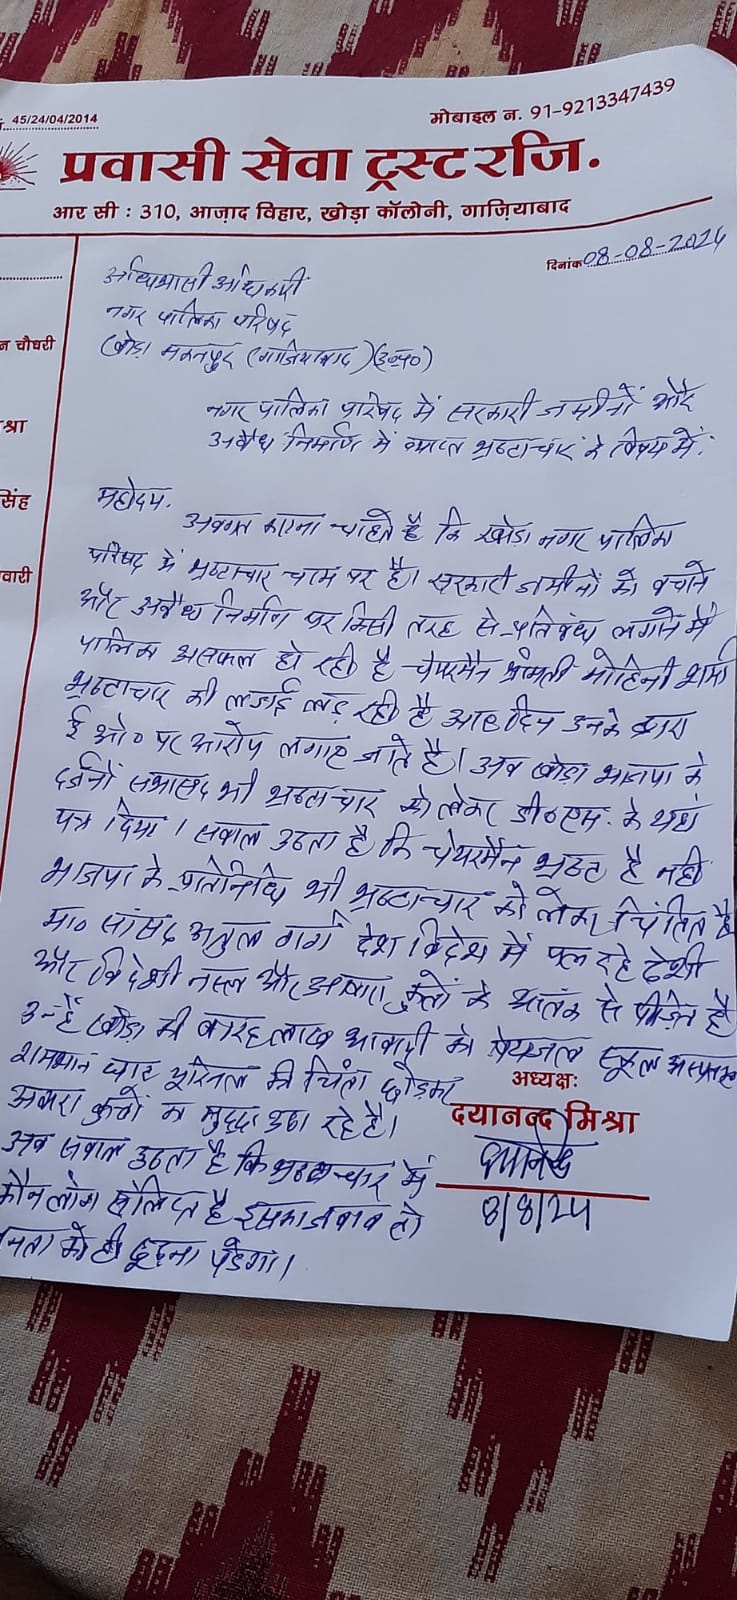 45/24/04/2014
मोबाइल न. 91-9213347439
प्रवासी सेवा ट्रस्ट रजि.
आर सी : 310, आज़ाद विहार, खोड़ा कॉलोनी, गाज़ियाबाद
दिनांक 08-08-2024
नगर पालिका परिषद
खोड़ा मकनपुर (गाजियाबाद) (उ०प्र०)
न चौधरी
श्रा
सिंह
वारी
नगर पालिका परिषद में सरकारी जमीनों और
अवैध निर्माण में व्याप्त भ्रष्टाचार के विषय में.
महोदय.
अवगत कराना चाहते है कि खोड़ा नगर पालिका
परिषद में भ्रष्टाचार चरम पर है। सरकारी जमीनों को बचाने
और अवैध निर्माण पर किसी तरह से प्रतिबंध लगाने में
पालिका असफल हो रही है चेयरमैन श्रीमती मोहिनी शर्मा
भ्रष्टाचार की लड़ाई लड़ रही है आए दिन उनके द्वारा
ई ओ० पर आरोप लगाए जाते है। अब खोड़ा भाजपा के
दर्जनों सभासद भी भ्रष्टाचार को लेकर डी०एम. के यहां
पत्र दिया। सवाल उठता है कि चेयरमैन भ्रष्ट है नहीं
भाजपा के प्रतिनिधि भी भ्रष्टाचार को लेकर चिंतित है
मा० सांसद अतुल गर्ग देश विदेश में पल रहे देशी
और विदेशी नस्ल और आवारा कुत्तों के आतंक से पीड़ित है
उन्हें खोड़ा की बारह लाख आबादी को पेयजल स्कूल अस्पताल
शमशान घाट की चिंता छोड़कर
आवारा कुत्तों का मुद्दा उठा रहे है।
अब सवाल उठता है कि भ्रष्टाचार में
कौन लोग संलिप्त है इसका जवाब तो
जनता को ही ढूढना पड़ेगा।
अध्यक्षः
दयानन्द मिश्रा
दयानन्द
8/8/24